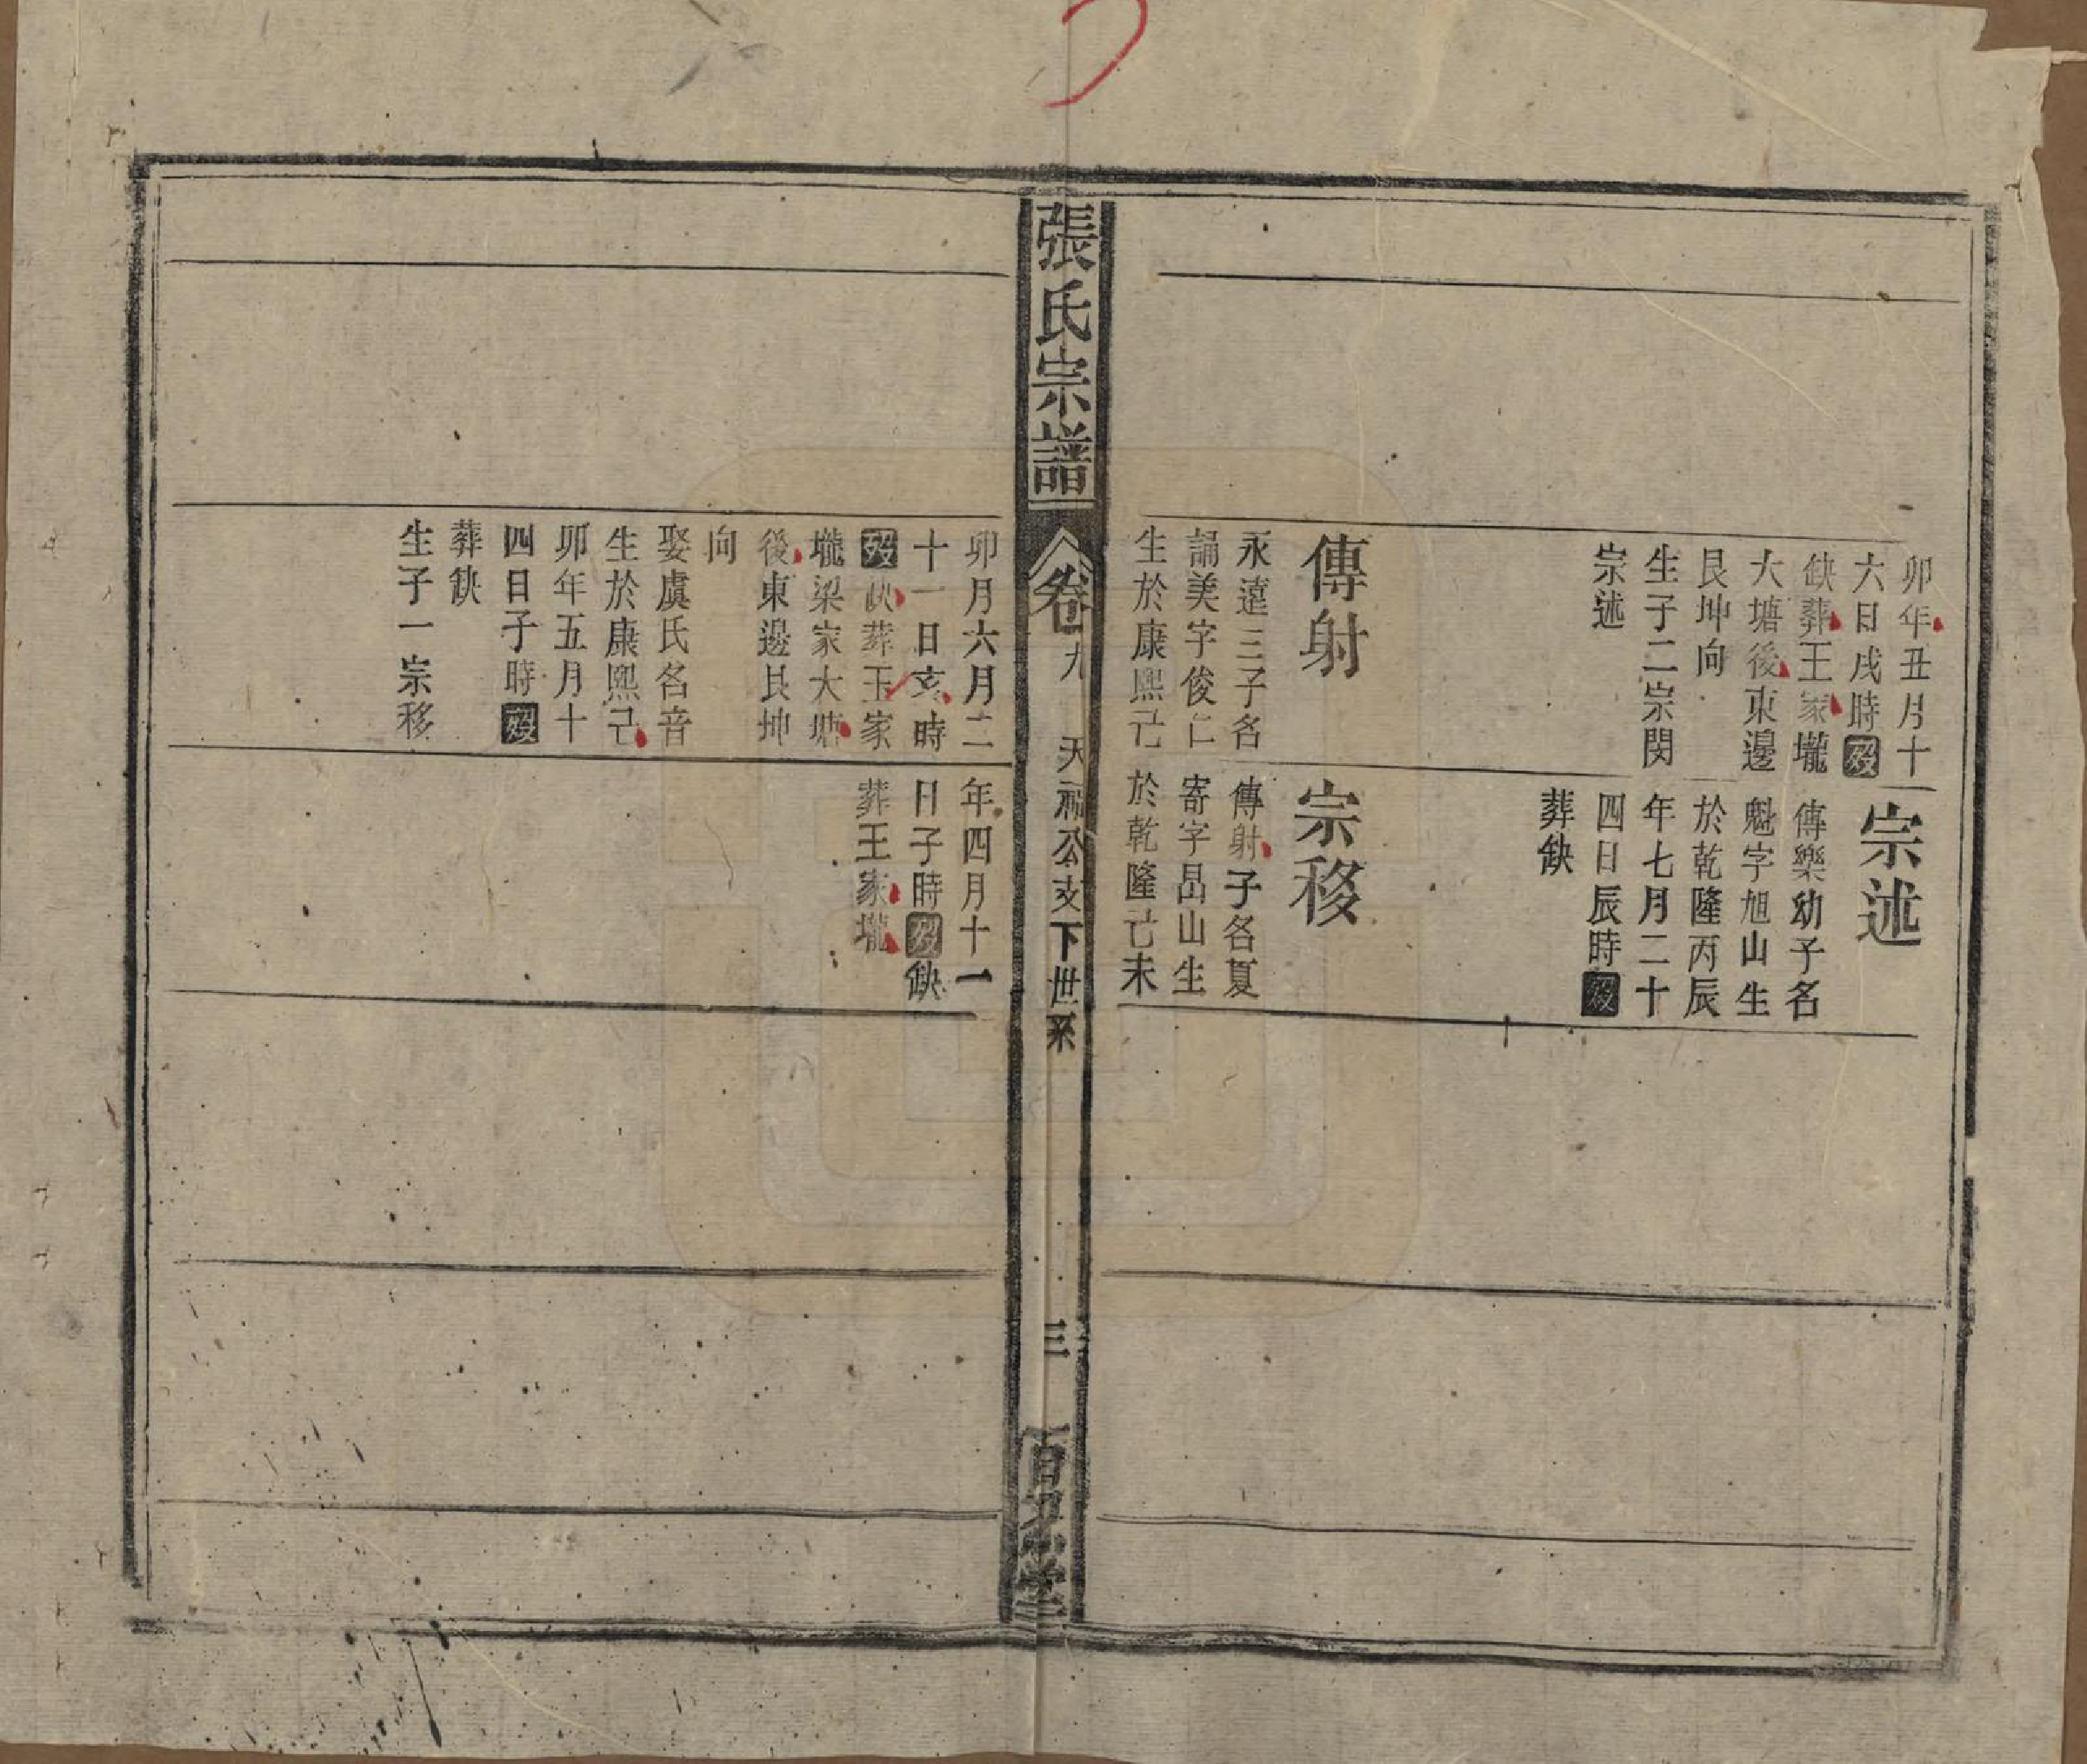 卯年丑月十
六日戌時歿
缺葬王家壠
大塘後東邊
艮坤向
生子二宗閔
宗述
傳射
永遠三子名
誦美字俊仁
生於康熙己
宗述
傳樂幼子名
魁字旭山生
於乾隆丙辰
年七月二十
四日辰時歿
葬缺
宗移
傳射子名夏
寄字嵒山生
於乾隆己未
張氏宗譜
卷九
天福公支下世系
三
百忍堂
卯月六月二
十一日亥時
歿缺葬王家
壠梁家大塘
後東邊艮坤
向
娶虞氏名音
生於康熙己
卯年五月十
四日子時歿
葬缺
生子一宗移
年四月十一
日子時歿缺
葬王家壠